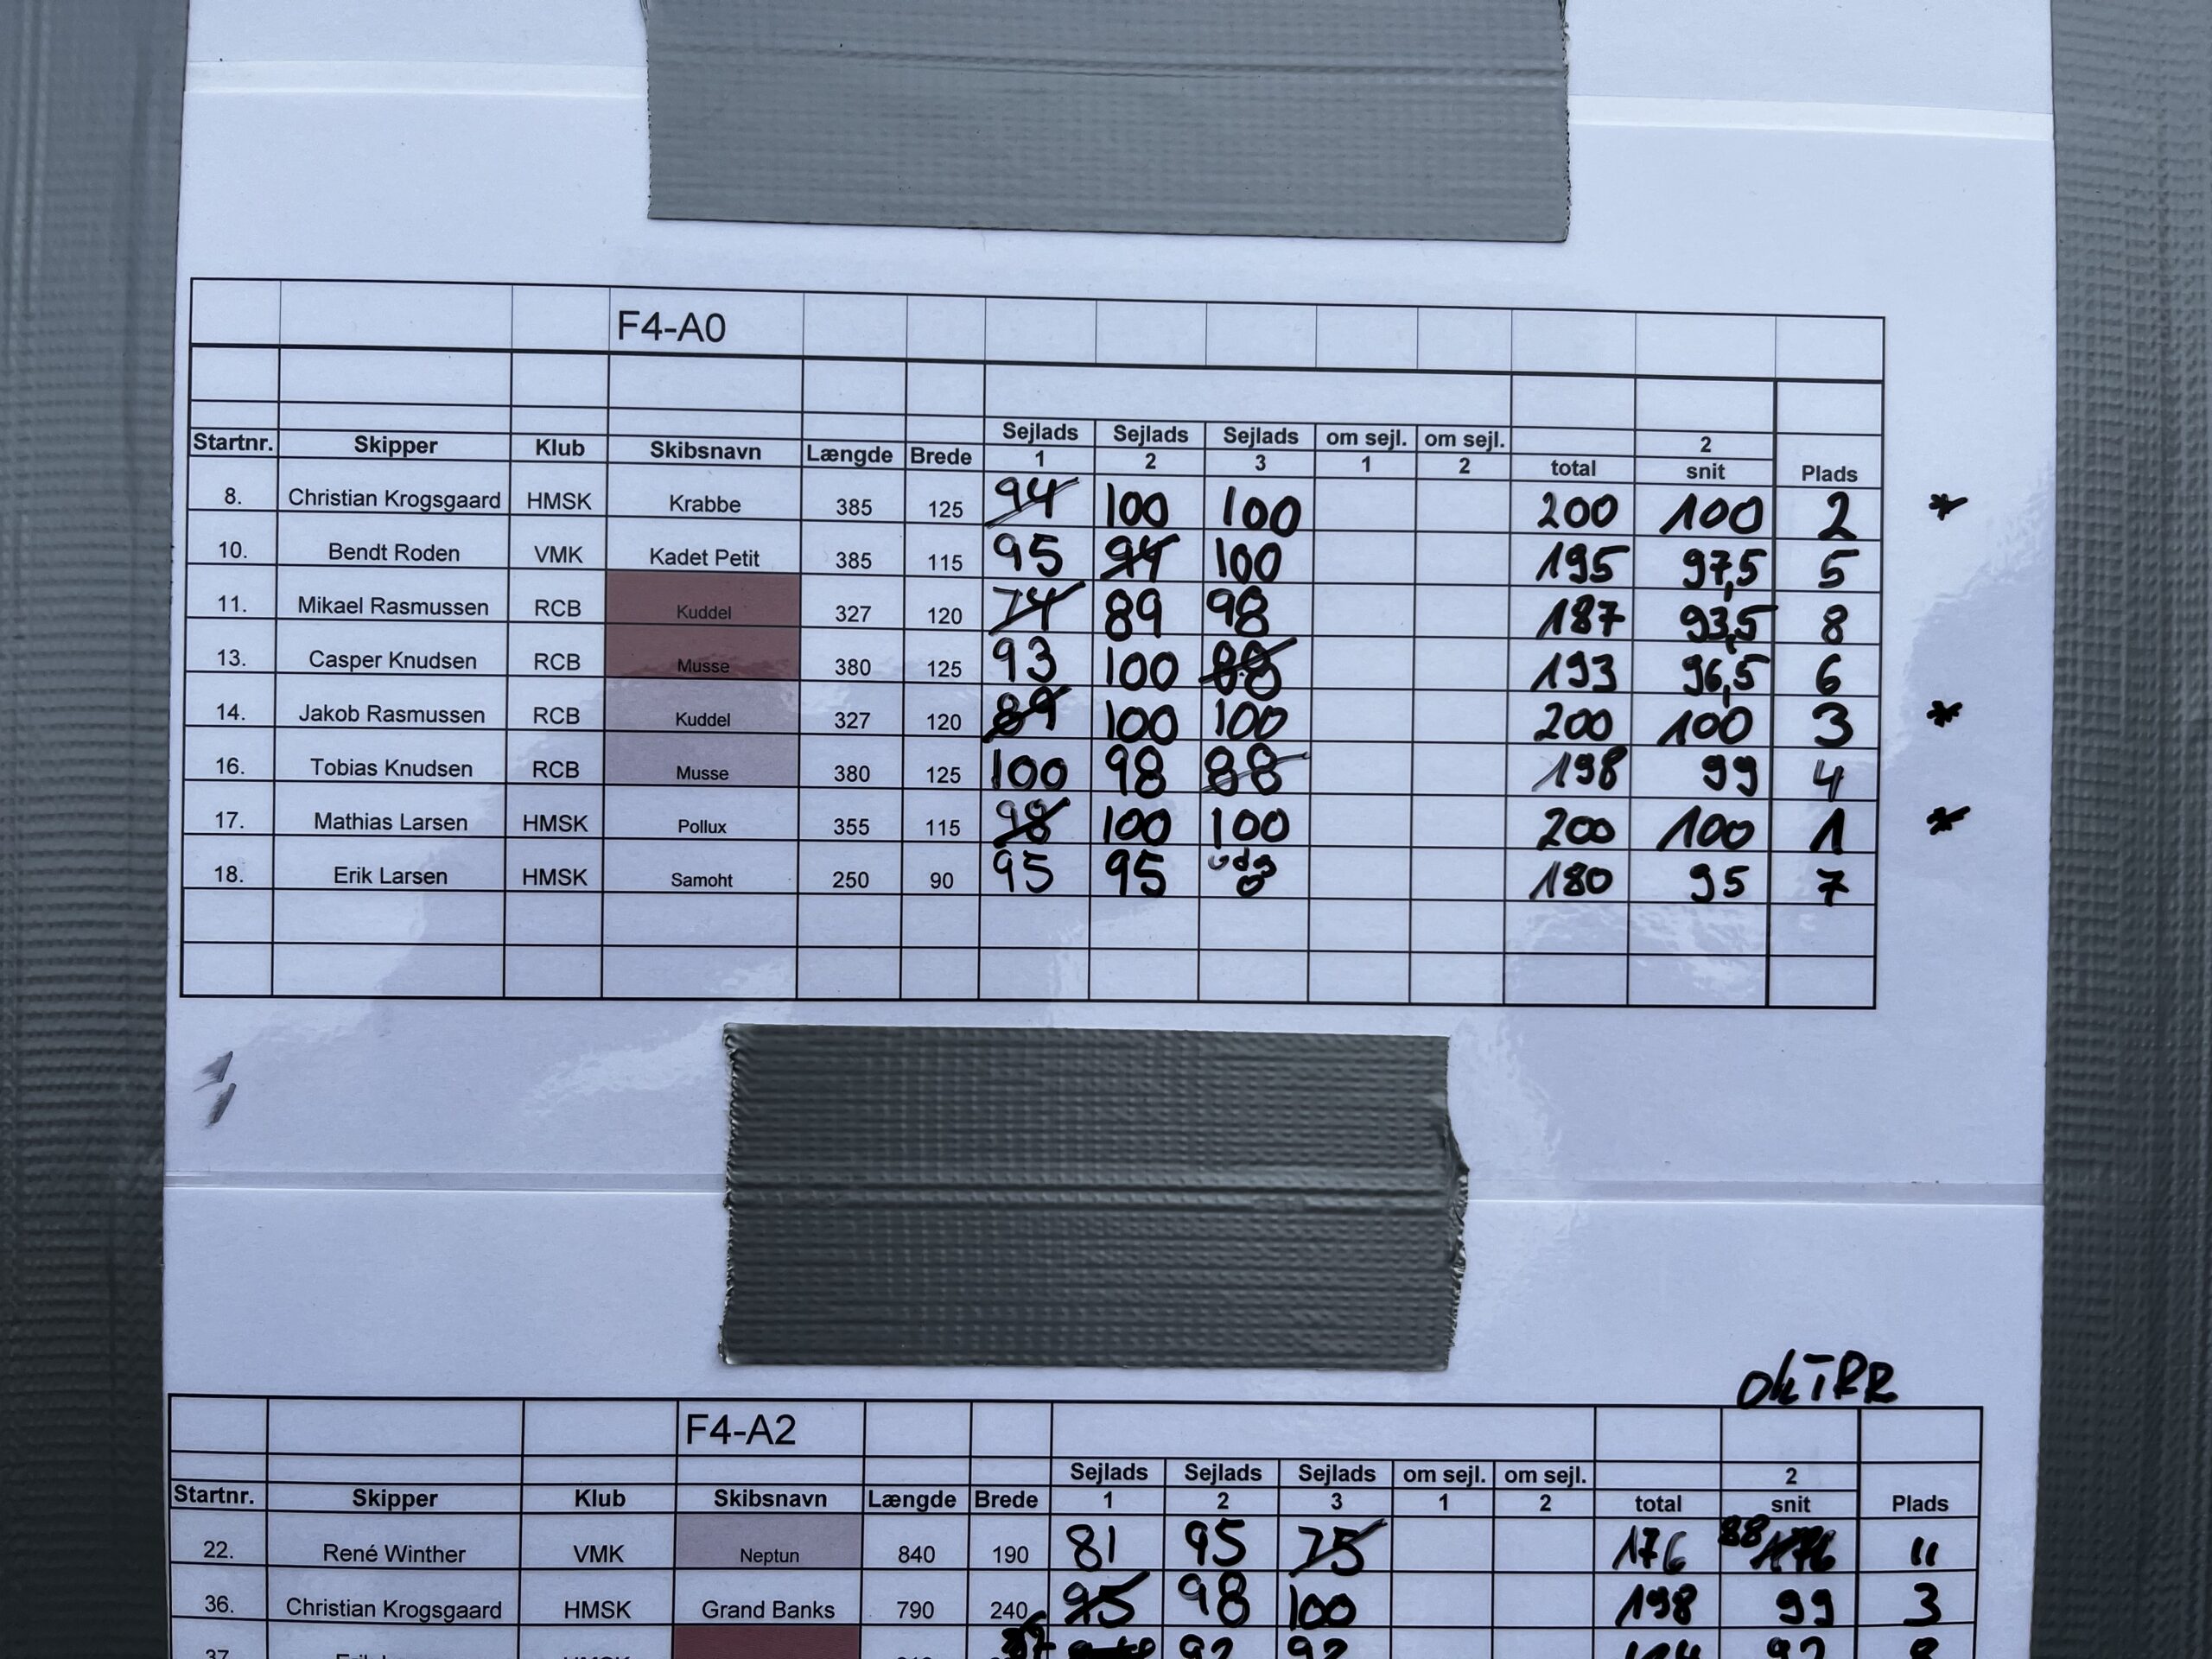 F4-A0
2
Startnr. Skipper Klub Skibsnavn Længde Brede Sejlads 1 Sejlads 2 Sejlads 3 om sejl. 1 om sejl. 2 total snit Plads
8. Christian Krogsgaard HMSK Krabbe 385 125 94 100 100 200 100 2 *
10. Bendt Roden VMK Kadet Petit 385 115 95 94 100 195 97,5 5
11. Mikael Rasmussen RCB Kuddel 327 120 74 89 98 187 93,5 8
13. Casper Knudsen RCB Musse 380 125 93 100 88 193 96,5 6
14. Jakob Rasmussen RCB Kuddel 327 120 89 100 100 200 100 3 *
16. Tobias Knudsen RCB Musse 380 125 100 98 88 198 99 4
17. Mathias Larsen HMSK Pollux 355 115 98 100 100 200 100 1 *
18. Erik Larsen HMSK Samoht 250 90 95 95 udg 180 95 7
OK TRR
F4-A2
2
Startnr. Skipper Klub Skibsnavn Længde Brede Sejlads 1 Sejlads 2 Sejlads 3 om sejl. 1 om sejl. 2 total snit Plads
22. René Winther VMK Neptun 840 190 81 95 75 176 88 176 11
36. Christian Krogsgaard HMSK Grand Banks 790 240 95 98 100 198 99 3
37. 92 92 92